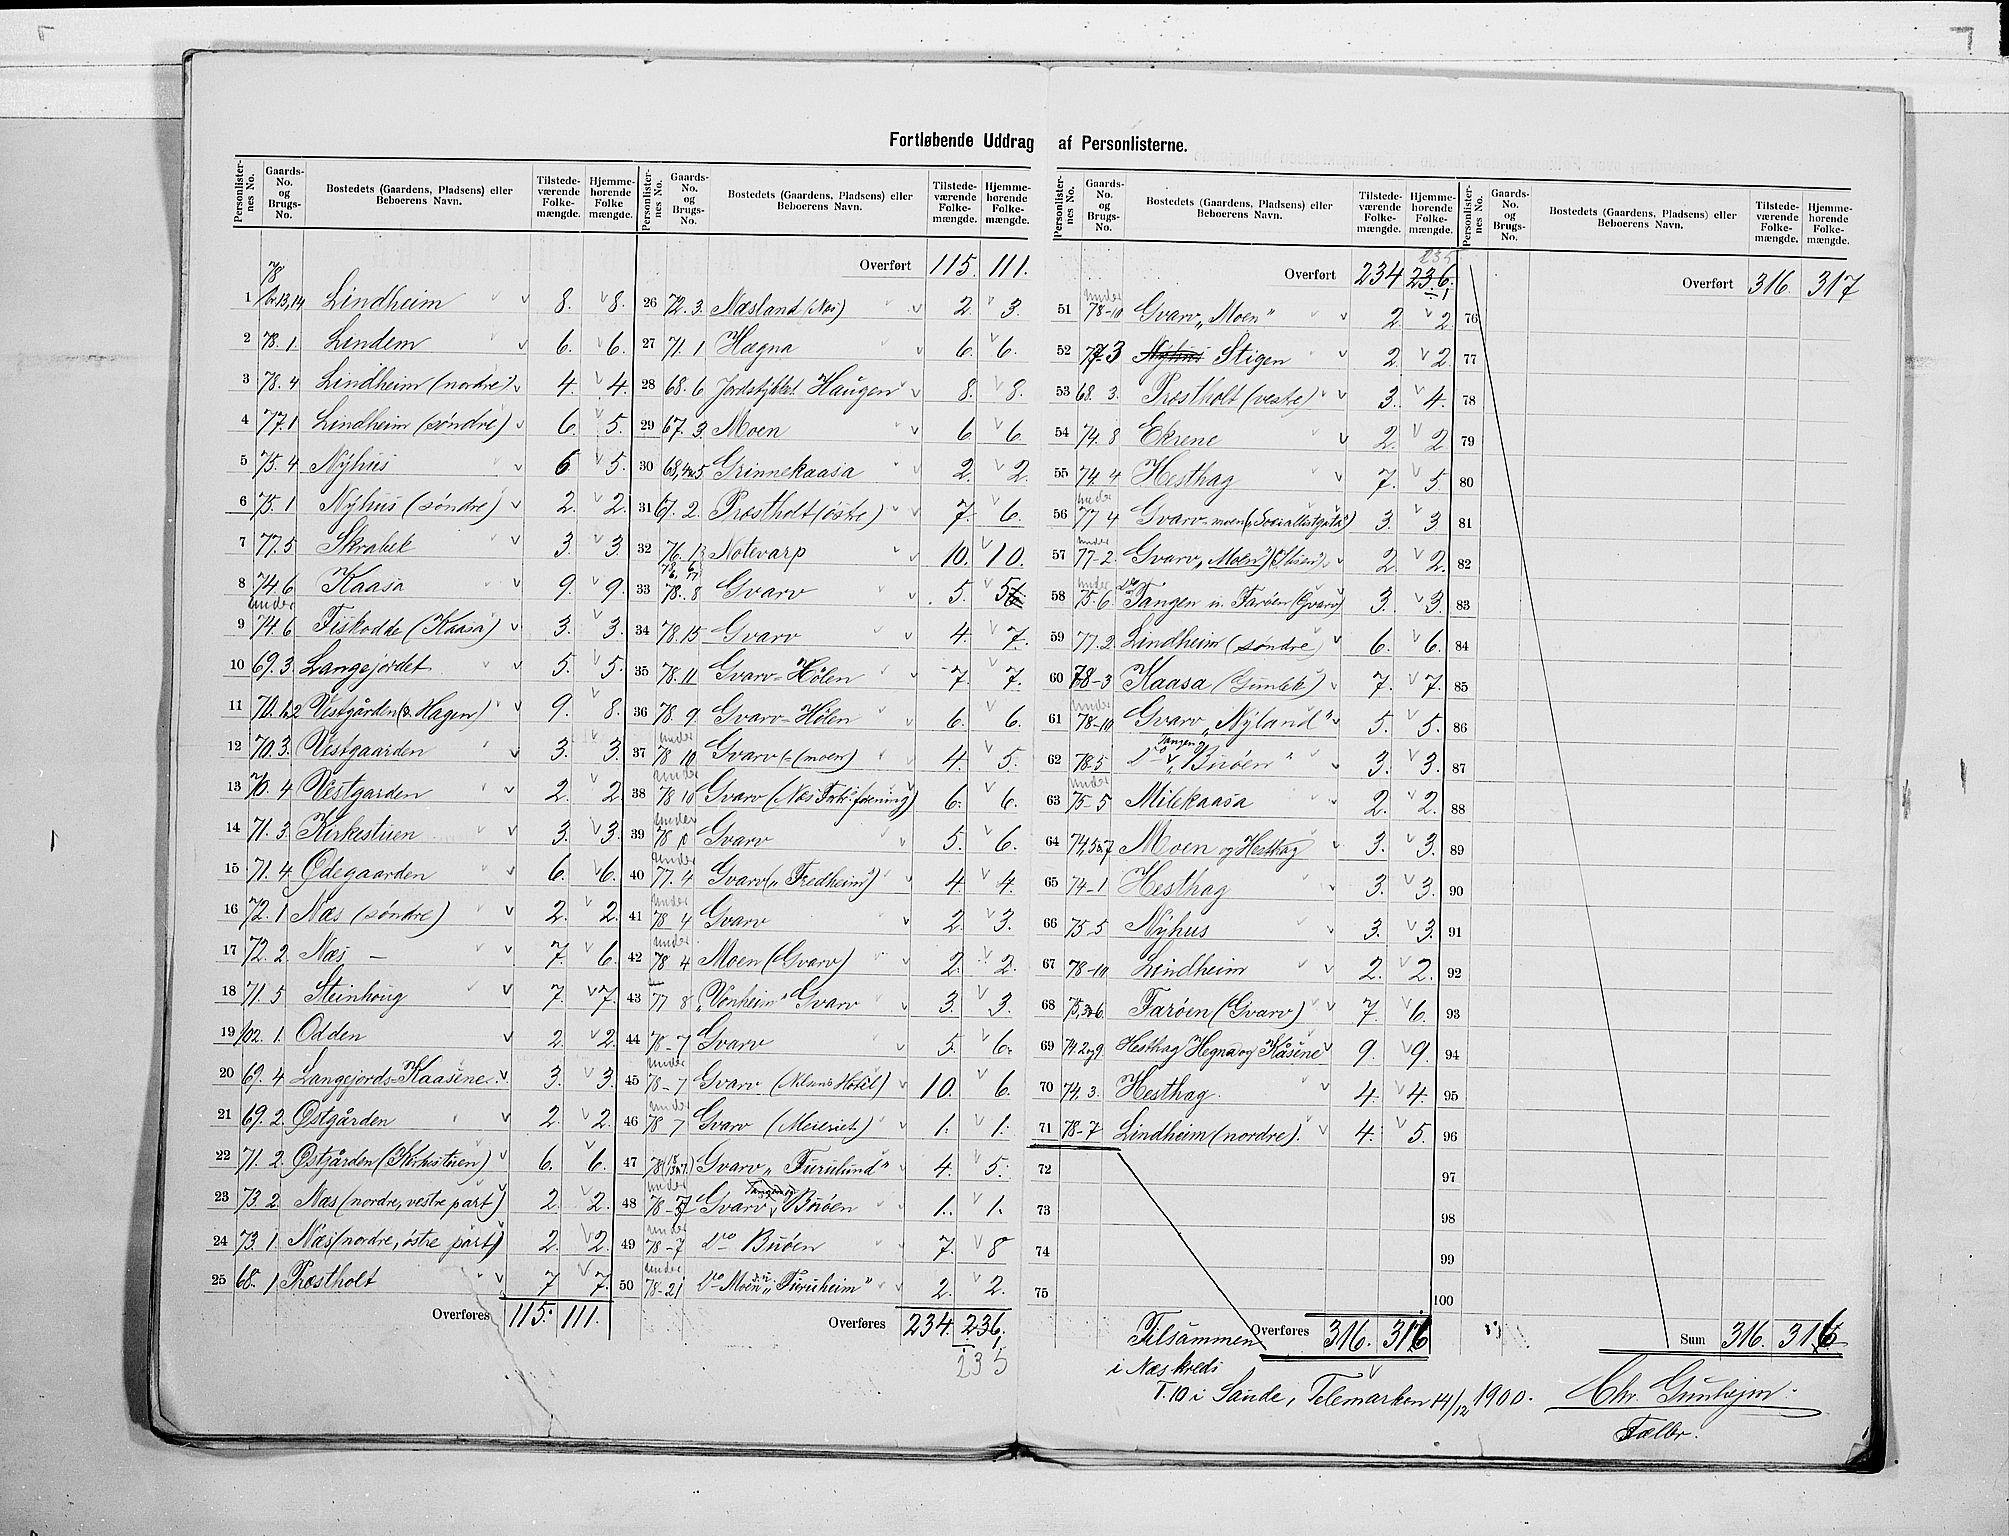 Fortløbende Uddrag af Personlisterne.
Personlister-nes No. | Gaards-No. og Brugs-No. | Bostedets (Gaardens, Pladsens) eller Beboerens Navn. | Tilstede-værende Folke-mængde. | Hjemme-hørende Folke mængde.
78
1 13,14 Lindheim 8. 8.
2 78. 1 Lindem 6. 6.
3 78. 4 Lindheim (nordre) 4. 4.
4 77. 1 Lindheim (søndre) 6. 5.
5 75. 4 Nyhus 6 5.
6 75. 1 Nyhus (søndre) 2. 2.
7 77. 5 Skrabek 3. 3.
8 74. 6 Kaasa 9. 9.
under
9 74. 6 Fiskodde (Kaasa) 3. 3.
10 69. 3. Langejordet 5. 5.
11 70. 1,2 Vestgården (Hagen) 9. 8.
12 70. 3. Vestgaarden 3. 3.
13 70. 4 Vestgarden 2. 2
14 71. 3. Kirkestuen 3. 3.
15 71. 4 Ødegaarden 6. 6.
16 72. 1 Næs (søndre) 2. 2.
17 72. 2. Næs — 7. 6.
18 71. 5 Steinhoug 7. 7.
19 102. 1. Odden 2. 2.
20 69. 4 Langejords-Kaasene 3. 3.
21 69. 2. Østgården 2. 2.
22 71. 2. Østgården (Kirkestuen) 6. 6.
23 73. 2. Næs (nordre, vestre part) 2. 2.
24 73. 1. Næs (nordre, østre part) 2. 2.
25 68. 1 Præstholt 7 7.
Overføres 115. 111.
Personlister-nes No. | Gaards-No. og Brugs-No. | Bostedets (Gaardens, Pladsens) eller Beboerens Navn. | Tilstede-værende Folke-mængde. | Hjemme-hørende Folke-mængde.
Overført 115. 111.
26 72. 3. Næsland (Næs) 2. 3.
27 71. 1 Hægna 6. 6.
28 68. 6 Haugen 8. 8.
29 67. 3. Moen 6. 6
30 68, 4 5 Grinnekaasa 2. 2.
31 67. 2. Præstholt (østre) 7. 6.
32 76. 13 Notevarp 10. 10.
33 78. 8 Gvarv 5. 5
34 78. 15 Gvarv 4. 7.
35 78. 11 Gvarv-Hølen 7. 7.
36 78. 9. Gvarv-Hølen 6. 6.
under
37 78 10 Gvarv (moen) 4. 5.
under
38 78 10 Gvarv (Næs forening) 6. 6.
under
39 78 Gvarv 5. 6.
under
40 77. 4 Gvarv („Fredheim") 4. 4.
under
41 78 4 Gvarv 2. 3.
under
42 78 4 Moen (Gvarv) 2. 2.
43 77 8 „Vonheim" Gvarv 3. 3.
44 78-7 Gvarv 5. 6.
under
45 78-7 Gvarv (Hotel) 10. 6.
under
46 78 7 Gvarv (Meieriet) 1. 1.
47 78 Gvarv „Furulund" 4. 5.
under
48 78-7 Gvarv Buøen 1. 1.
under
49 78-7 do Buøen 7. 8
under
50 78-21 do Moen „Furuheim" 2. 2.
Overføres 234. 236.
235
Personlister-nes No. | Gaards-No. og Brugs-No. | Bostedets (Gaardens, Pladsens) eller Beboerens Navn. | Tilstede-værende Folke-mængde. | Hjemme-hørende Folke-mængde.
235
Overført 234 236.
under
51 78-10 Gvarv „Moen" 2. 2.
52 77 3 Nyhus Stigen 2. 2.
53 68. 3. Præstholt (vestre) 3. 4.
54 74. 8 Ekrene 2. 2
55 74. 4 Hesthag 7. 5
under
56 77 4 Gvarv-moen 3. 3
under
57 77-2. Gvarv „Moen" 2 2.
under
58 75. 6 Tangen u. Farøen (Gvarv) 3. 3.
59 77. 2 Lindheim (søndre) 6. 6.
60 78-3 Kaasa (Gunlek) 7. 7.
under
61 78-10 Gvarv „Nyland" 5. 5.
Tangen
62 78-5 do „Buøen" 3. 3.
under
63 75-5 Milekaasa 2. 2.
64 74,5 7 Moen og Hesthag 3. 3.
65 74-1 Hesthag 3. 3.
66 75-5 Nyhus 3. 3.
67 78-10 Lindheim 2. 2.
68 75, 3 6. Farøen (Gvarv) 7. 6.
69 74. 2 og 9. Hesthag Hegna og Kåsene 9. 9.
70 74, 3. Hesthag. 4. 4.
71 78-7 Lindheim (nordre). 4. 5.
72
73
74
75
Overføres 316. 316
Personlister-nes No. | Gaards-No. og Brugs-No. | Bostedets (Gaardens, Pladsens) eller Beboerens Navn. | Tilstede-værende Folke-mængde. | Hjemme-hørende Folke-mængde.
Overført 316. 317
76
77
78
79
80
81
82
83
84
85
86
87
88
89
90
91
92
93
94
95
96
97
98
99
100
Sum 316. 316
Tilsammen
i Næs kreds
T. 10 i Saude, Telemarken 14/12 1900.
Chr. Gunheim
Tæller.